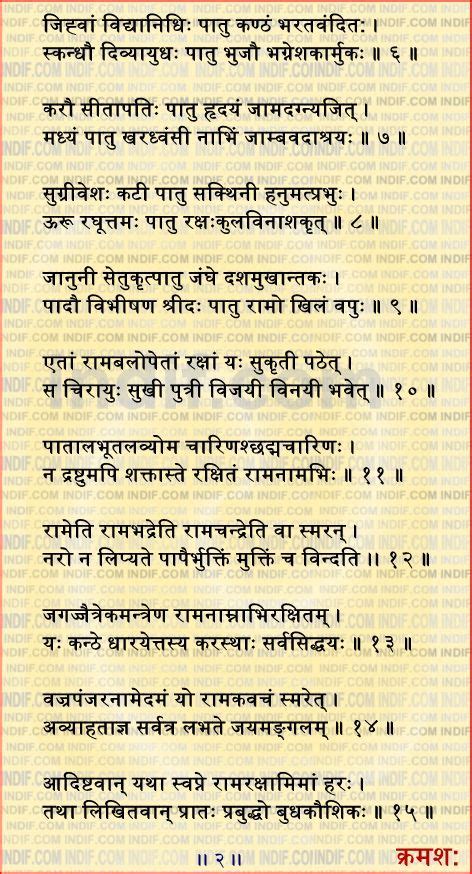 जिह्वां विद्यानिधिः पातु कण्ठं भरतवंदितः ।
स्कन्धौ दिव्यायुधः पातु भुजौ भग्नेशकार्मुकः ॥ ६ ॥
करौ सीतापतिः पातु हृदयं जामदग्न्यजित् ।
मध्यं पातु खरध्वंसी नाभिं जाम्बवदाश्रयः ॥ ७ ॥
सुग्रीवेशः कटी पातु सक्थिनी हनुमत्प्रभुः ।
ऊरू रघूत्तमः पातु रक्षःकुलविनाशकृत् ॥ ८ ॥
जानुनी सेतुकृत्पातु जंघे दशमुखान्तकः ।
पादौ विभीषण श्रीदः पातु रामो खिलं वपुः ॥ ९ ॥
एतां रामबलोपेतां रक्षां यः सुकृती पठेत् ।
स चिरायुः सुखी पुत्री विजयी विनयी भवेत् ॥ १० ॥
पातालभूतलव्योम चारिणश्छद्मचारिणः ।
न द्रष्टुमपि शक्तास्ते रक्षितं रामनामभिः ॥ ११ ॥
रामेति रामभद्रेति रामचन्द्रेति वा स्मरन् ।
नरो न लिप्यते पापैर्भुक्तिं मुक्तिं च विन्दति ।। १२ ॥
जगज्जैत्रेकमन्त्रेण रामनाम्नाभिरक्षितम् ।
यः कन्ठे धारयेत्तस्य करस्थाः सर्वसिद्धयः ॥ १३ ॥
वज्रपंजरनामेदमं यो रामकवचं स्मरेत् ।
अव्याहताज्ञ सर्वत्र लभते जयमङ्गलम् ॥ १४ ॥
आदिष्टवान् यथा स्वप्ने रामरक्षामिमां हरः ।
तथा लिखितवान् प्रातः प्रबुद्धो बुधकौशिकः ॥ १५ ॥
॥ २ ॥
क्रमश: